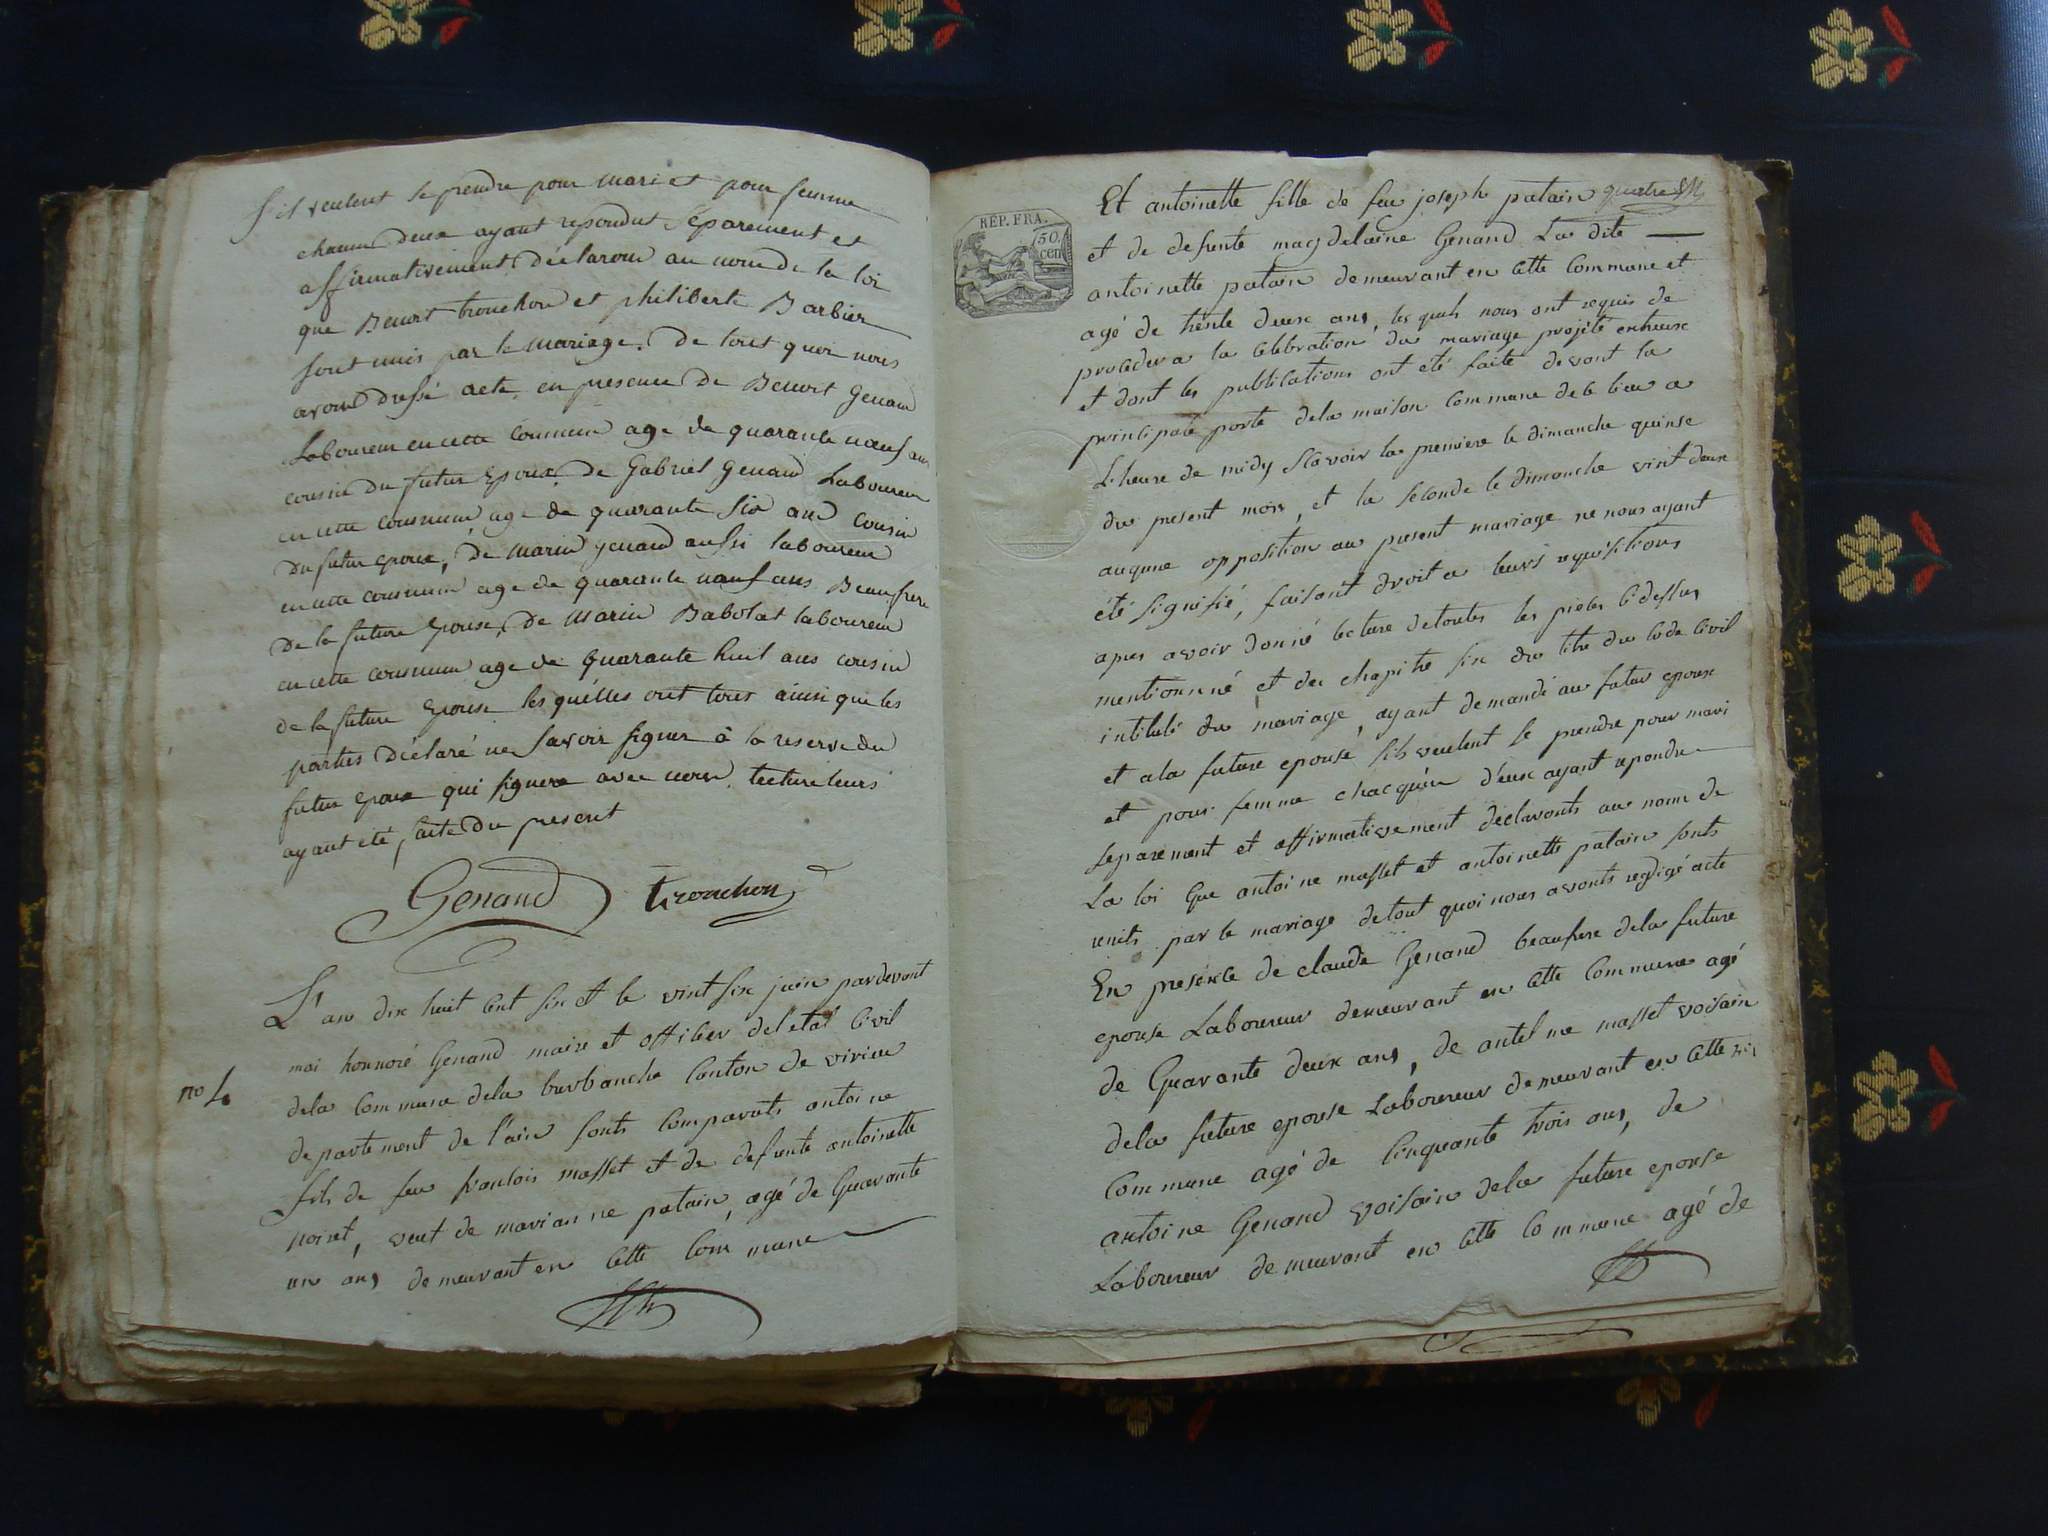 s'il veulent se prendre pour mari et pour femme
chacun deux ayant repondut séparement et
affirmativement, déclarons au nom de la loi
que Benoit trouchon et philiberte Barbier
sont unis par le mariage. De tout quoi nous
avons dressé acte en presence de Benoit Genand
Laboureur en cette commune age de quarante neuf ans
cousin du futur epoux, de Gabriel Genand Laboureur
en cette commune age de quarante six ans cousin
du futur epoux, de marin genand aussi laboureur
en cette commune age de quarante neuf ans Beaufrere
De la future epouse, de marin Babolat laboureur
en cette commune age de quarante huit ans cousin
de la future epouse lesquélles ont tous ainsi que les
parties déclaré ne savoir signer à la reserve du
futur epoux qui signera avec nous. lecture leurs
ayant eté faite du present
Genand trouchon
no 4
L'an dix huit cent six et le vint six juin pardevant
moi honnoré Genand maire et officier del'état civil
dela commune dela burbanche canton de virieu
departement de l'ain sonts comparuts antoine
fils de feu francois masset et de defunte antoinette
poinet, veuf de marianne patain, agé de Quarante
un ans demeurant en cette commune
REP. FRA.
50
cen
Et antoinette fille de feu joseph patain quatre
et de defunte magdelaine Genand La dite
antoinette patain demeurant en cette commune et
agé de trente deux ans, les quels nous ont requis de
proceder a la celebration du mariage projeté entreux
et dont les publications ont été faite devant la
principale porte dela maison commune de ce lieu a
L'heure de midy scavoir la premiere le dimanche quinse
du present mois, et la seconde le dimanche vint deux
auqune opposition au present mariage ne nous ayant
été signifié, faisant droit a leurs requisitions
apres avoir donné lecture detoutes les pieces cidessus
mentionné et du chapitre six du titre du code civil
intitulé du mariage, ayant demandé au futur epoux
et ala future epouse sils veulent se prendre pour mari
et pour femme chacquun d'eux ayant repondu
separement et affirmativement declaronts au nom de
La loi Que antoine masset et antoinette patain sonts
units par le mariage detout quoi nous avonts redigé acte
En presence de claude Genand beaufrere dela future
epouse Laboureur demeurant en cette commune agé
de Quarante deux ans, de antelme masset voisain
dela future epouse Laboureur demeurant en cette
commune agé de cinquante trois ans, de
antoine Genand voisain dela future epouse
Laboureur demeurant en cette commune agé de